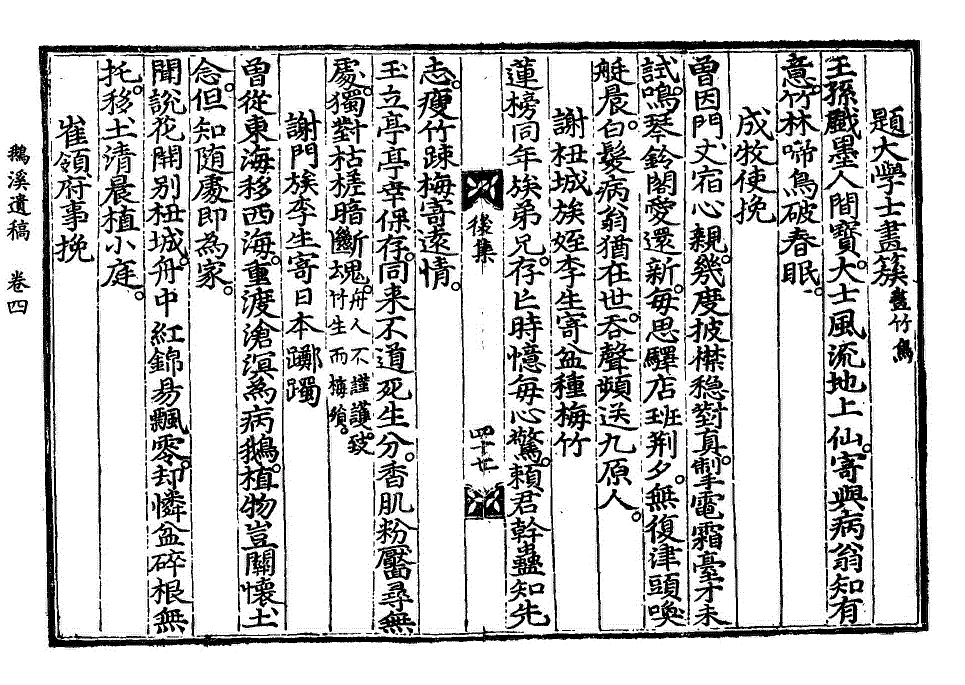 題大學士畫簇畫竹鳥
王孫戱墨人間寶。大士風流地上仙。寄與病翁知有
意。竹林啼鳥破春眠。
成牧使挽
曾因門丈宿心親。幾度披襟穩對眞。掣電霜毫才未
試。鳴琴鈴閣愛還新。每思驛店班荆夕。無復津頭喚
艇晨。白髮病翁猶在世。吞聲頻送九原人。
謝杻城族姪李生寄盆種梅竹
蓮榜同年族弟兄。存亡時憶每心驚。賴君幹蠱知先
志。瘦竹踈梅寄遠情。
後集
四十七
玉立亭亭幸保存。同来不道死生分。香肌粉靨尋無
處。獨對枯槎暗斷魂。舟人不謹護。致
竹生而梅損。
謝門族李生寄日本躑躅
曾從東海移西海。重渡滄溟爲病鵝。植物豈關懷土
念。但知随處即為家。
聞說花開别杻城。舟中紅錦易飄零。却憐盆碎根無
托。移土清晨植小庭。
崔領府事挽
鵝溪遺稿 卷四